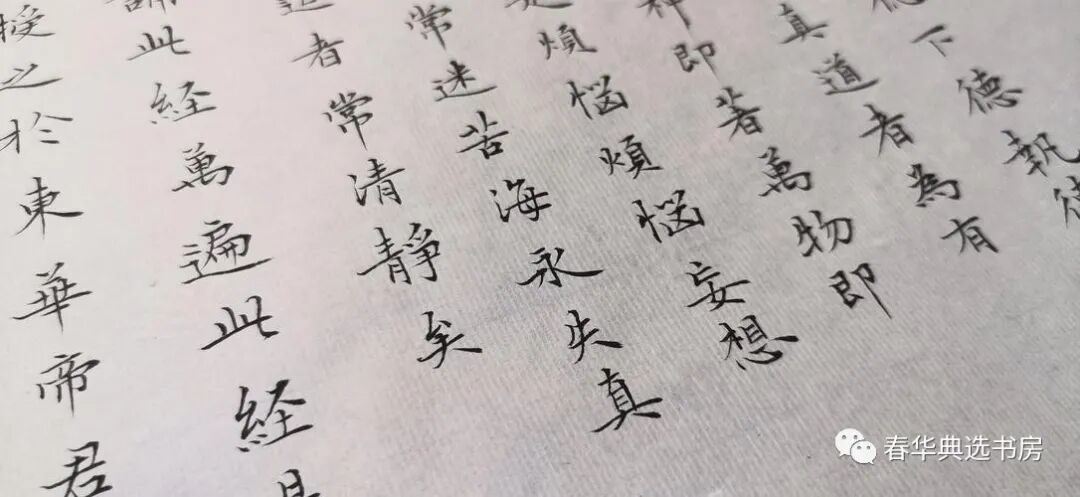 下德執德
真道者為有
神即著萬物即
是煩悩煩悩妄想
常迷苦海永失真
者常清靜矣
誦此経萬遍此経
授之於東華帝君
春华典选书房